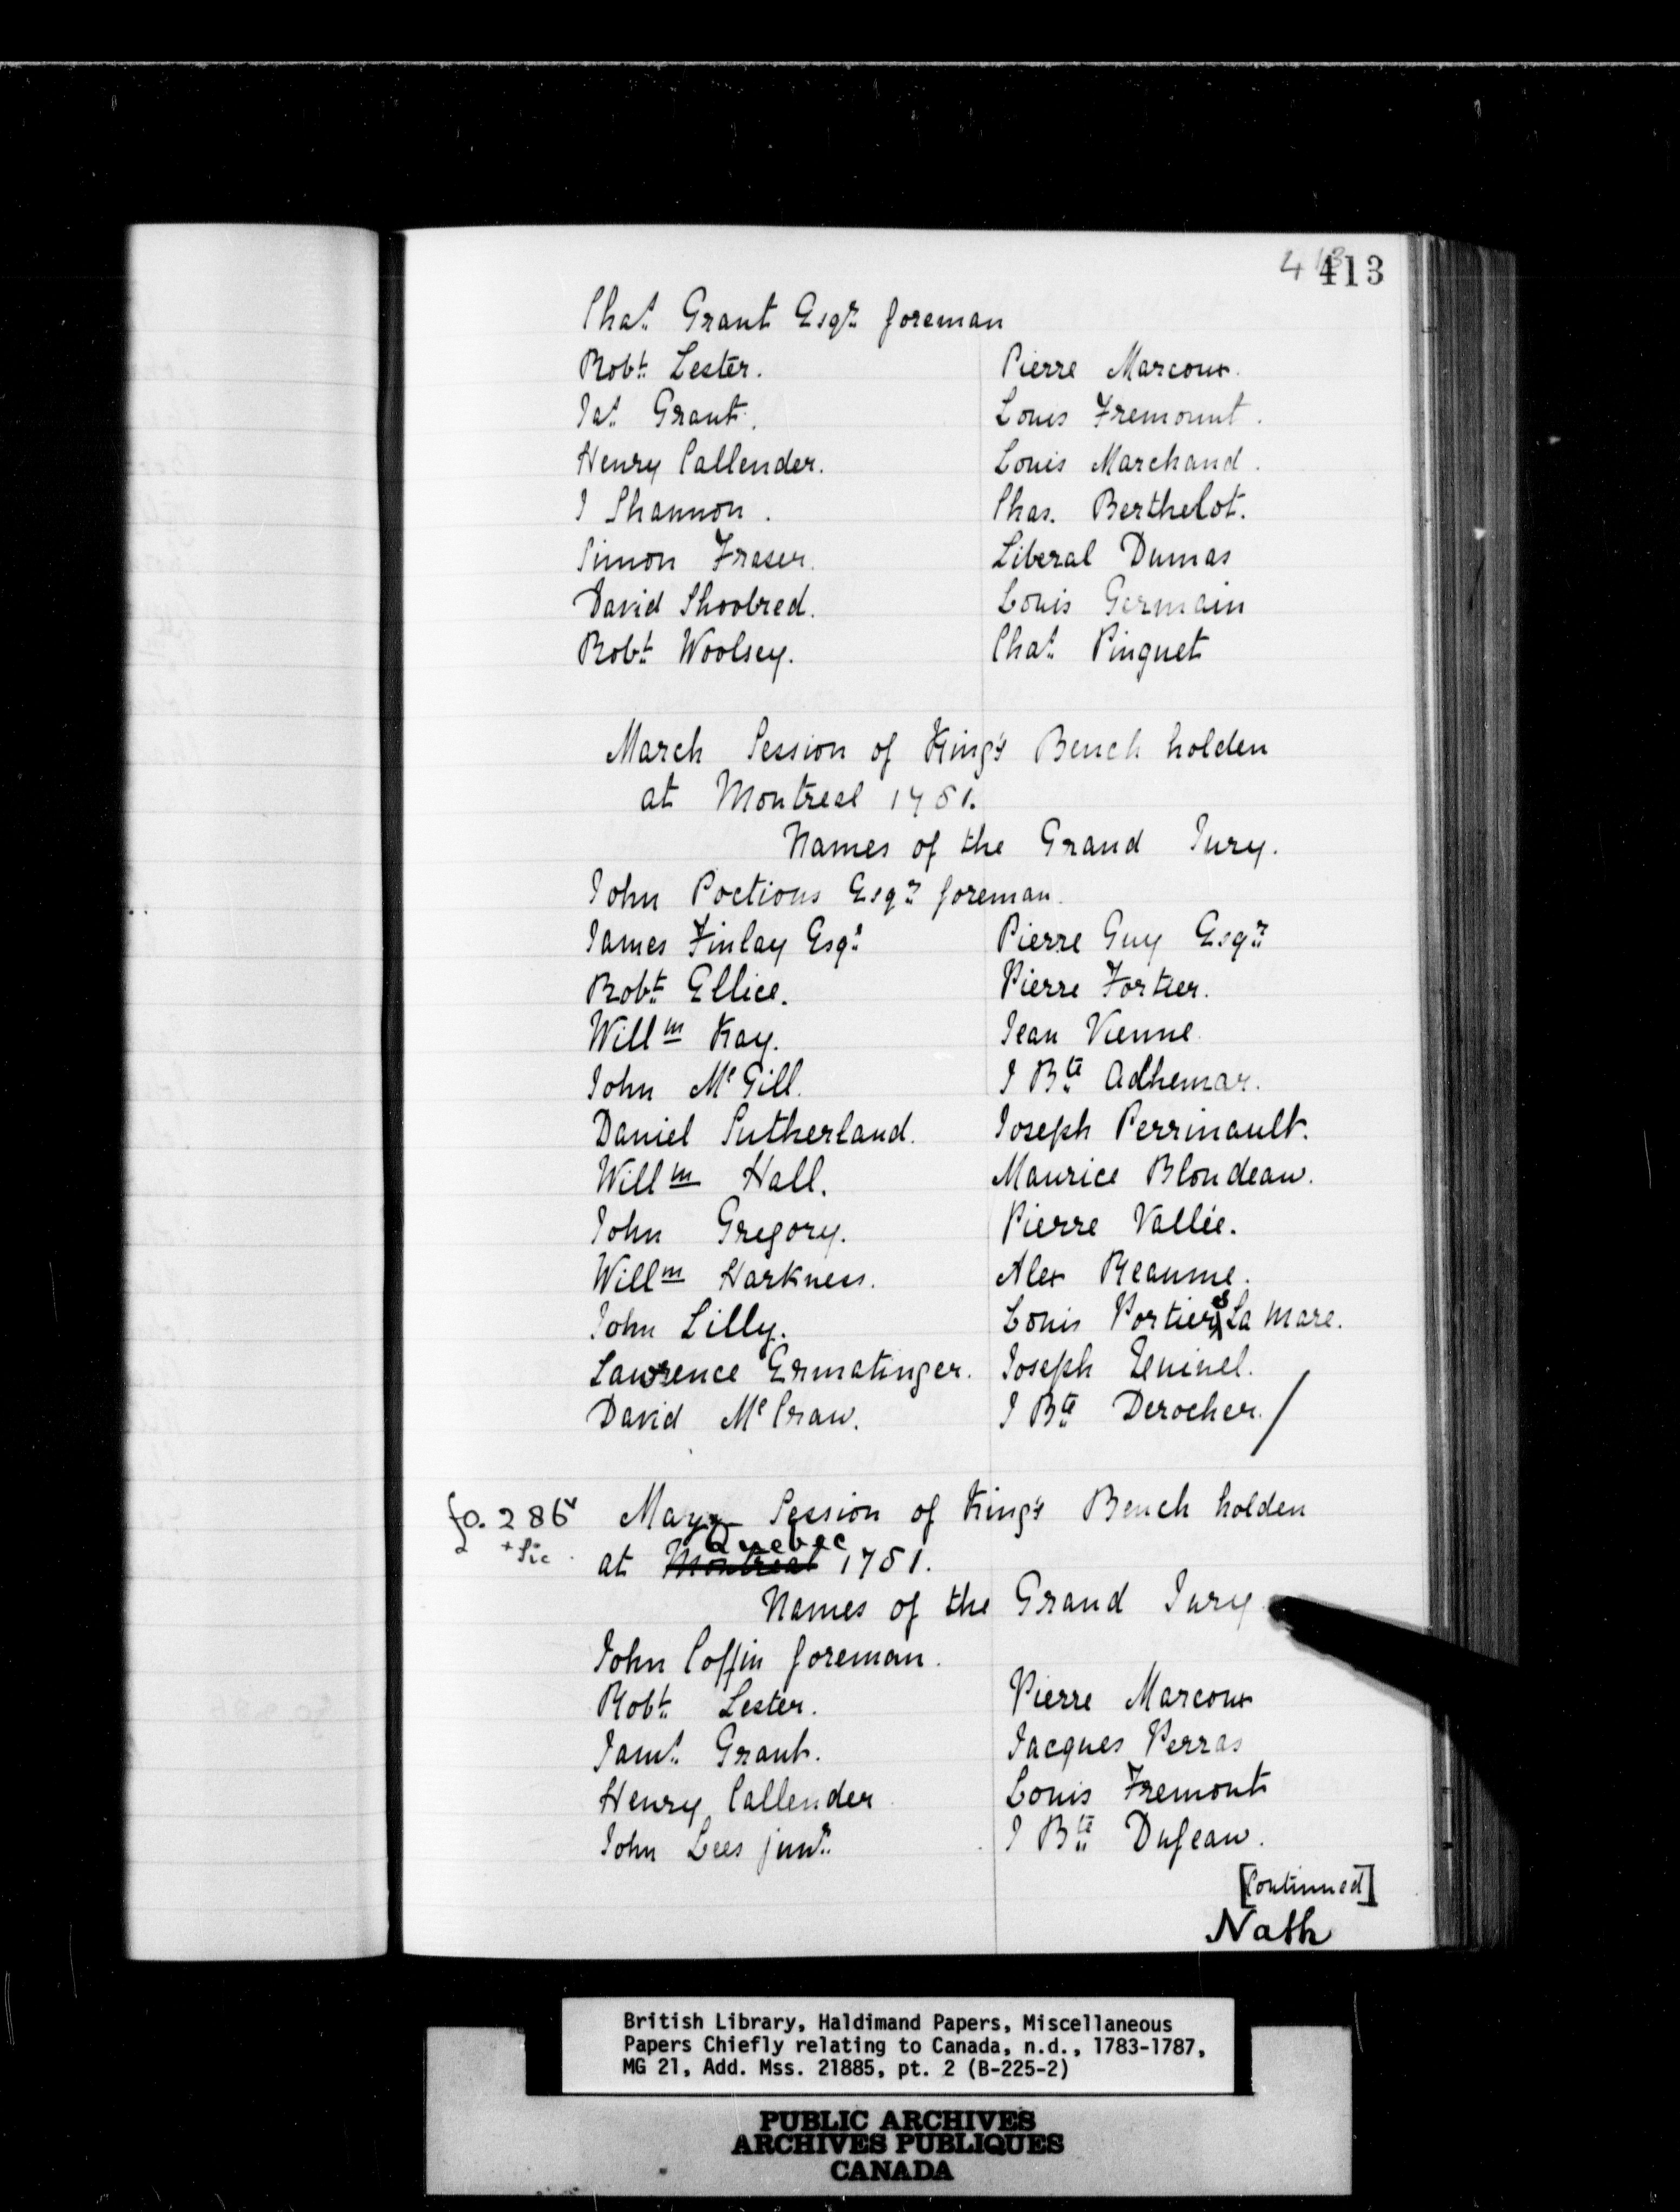 413
413
Chaˢ Grant Esqʳ foreman
Robᵗ Lester. Pierre Marcoux.
Jaˢ Grant. Louis Fremount.
Henry Callender. Louis Marchand.
J Shannon. Chas. Berthelot.
Simon Fraser. Liberal Dumas
David Shoobred. Louis Germain
Robᵗ Woolsey. Chaˢ Pinguet
March Session of King's Bench holden
at Montreal 1781.
Names of the Grand Jury.
John Poctious Esqʳ foreman.
James Finlay Esqʳ Pierre Guy Esqʳ
Robᵗ Ellice. Pierre Fortier.
Willᵐ Kay. Jean Vienne.
John MᶜGill. J Bᵗᵉ Adhemar.
Daniel Sutherland. Joseph Perrinault.
Willᵐ Hall. Maurice Blondeau.
John Gregory. Pierre Vallée.
Willᵐ Harkness. Alex Reaume.
John Lilly. Louis Portier La Mare.
Lawrence Ermatinger. Joseph
David MᶜCraw. J Bᵗᵉ Derocher. /
fo. 286ᵛ May Session of King's Bench holden
+ Sic. at Montreal Quebec 1781.
Names of the Grand Jury
John Coffin foreman.
Robᵗ Lester. Pierre Marcoux
Jamˢ Grant. Jacques Perras
Henry Callender Louis Fremont
John Lees junʳ J Bᵗᵉ Dufeau.
[Continued]
Nath
British Library, Haldimand Papers, Miscellaneous
Papers Chiefly relating to Canada, n.d., 1783-1787,
MG 21, Add. Mss. 21885, pt. 2 (B-225-2)
PUBLIC ARCHIVES
ARCHIVES PUBLIQUES
CANADA